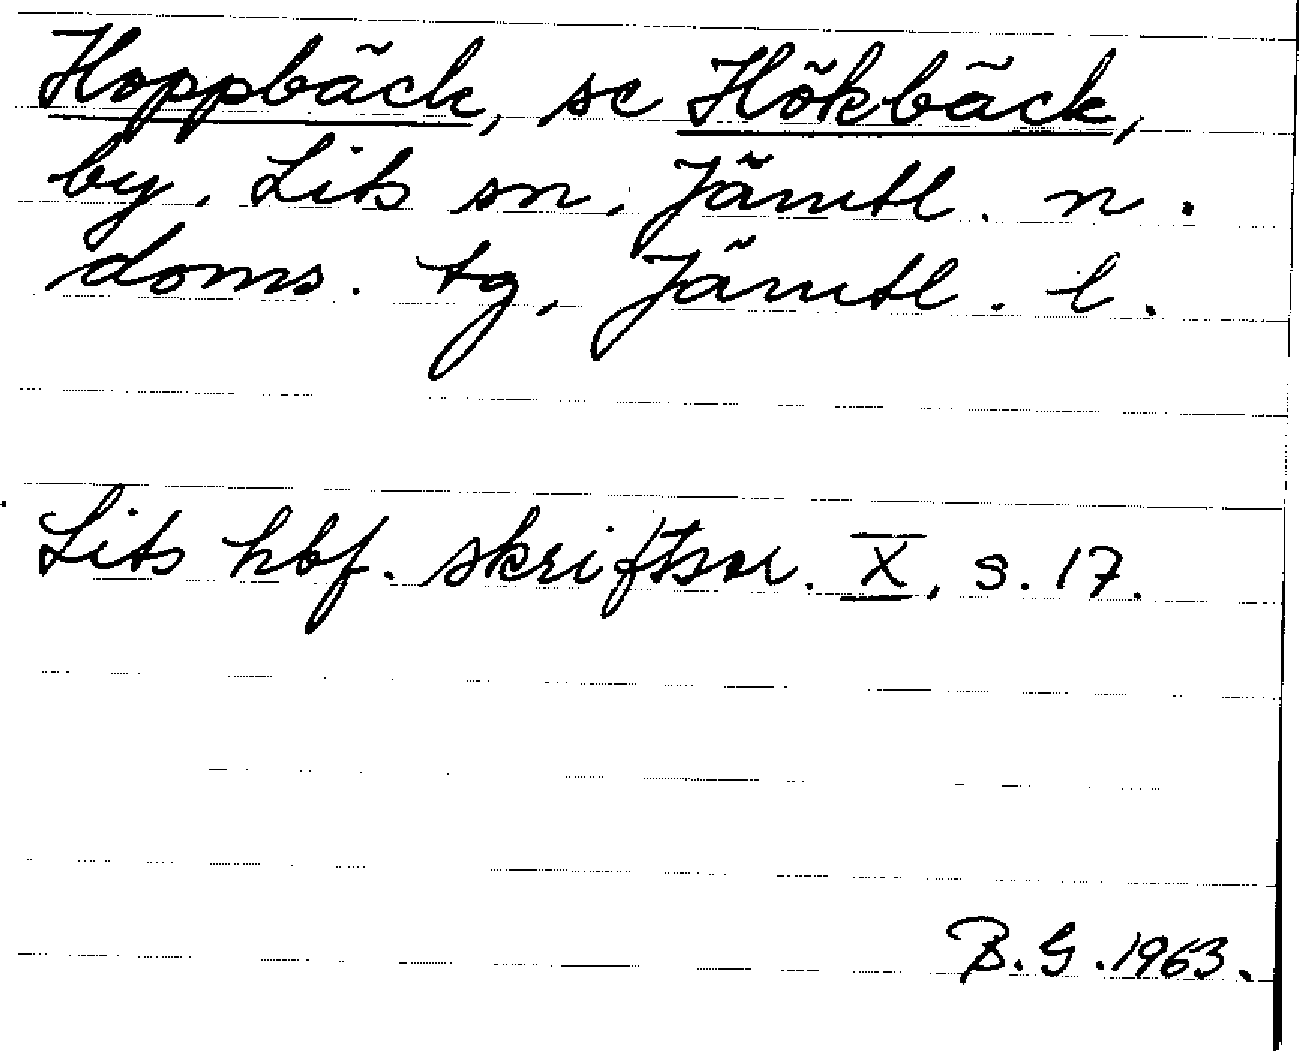 Hoppbäck, se Hökbäck,
by. Lits sn, Jämtl. n.
doms. tg, Jämtl. l.
Lits hbf. skriftser. X, s. 17.
B.G. 1963.